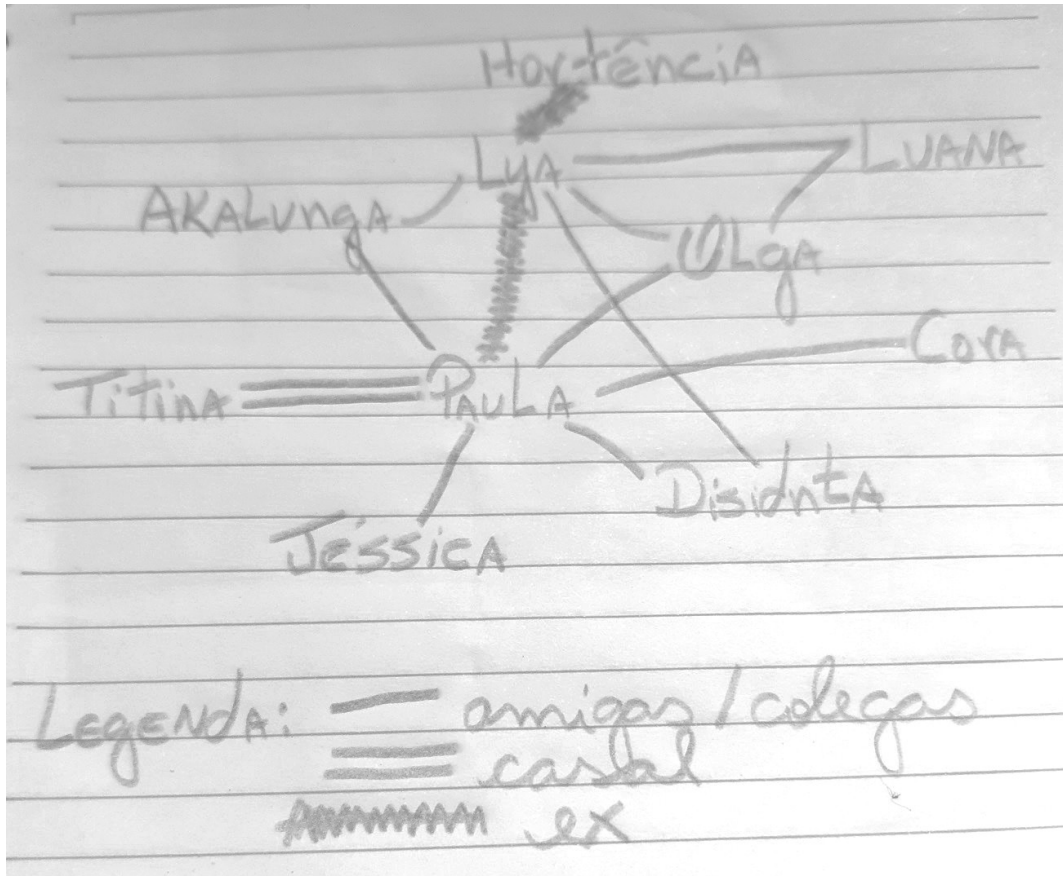 Hortência
Lya LUANA
AKALUngA OLgA
Cora
TiTinA PAULA
DisidntA
JéssicA
LEgENdA: amigas / colegas
casal
ex